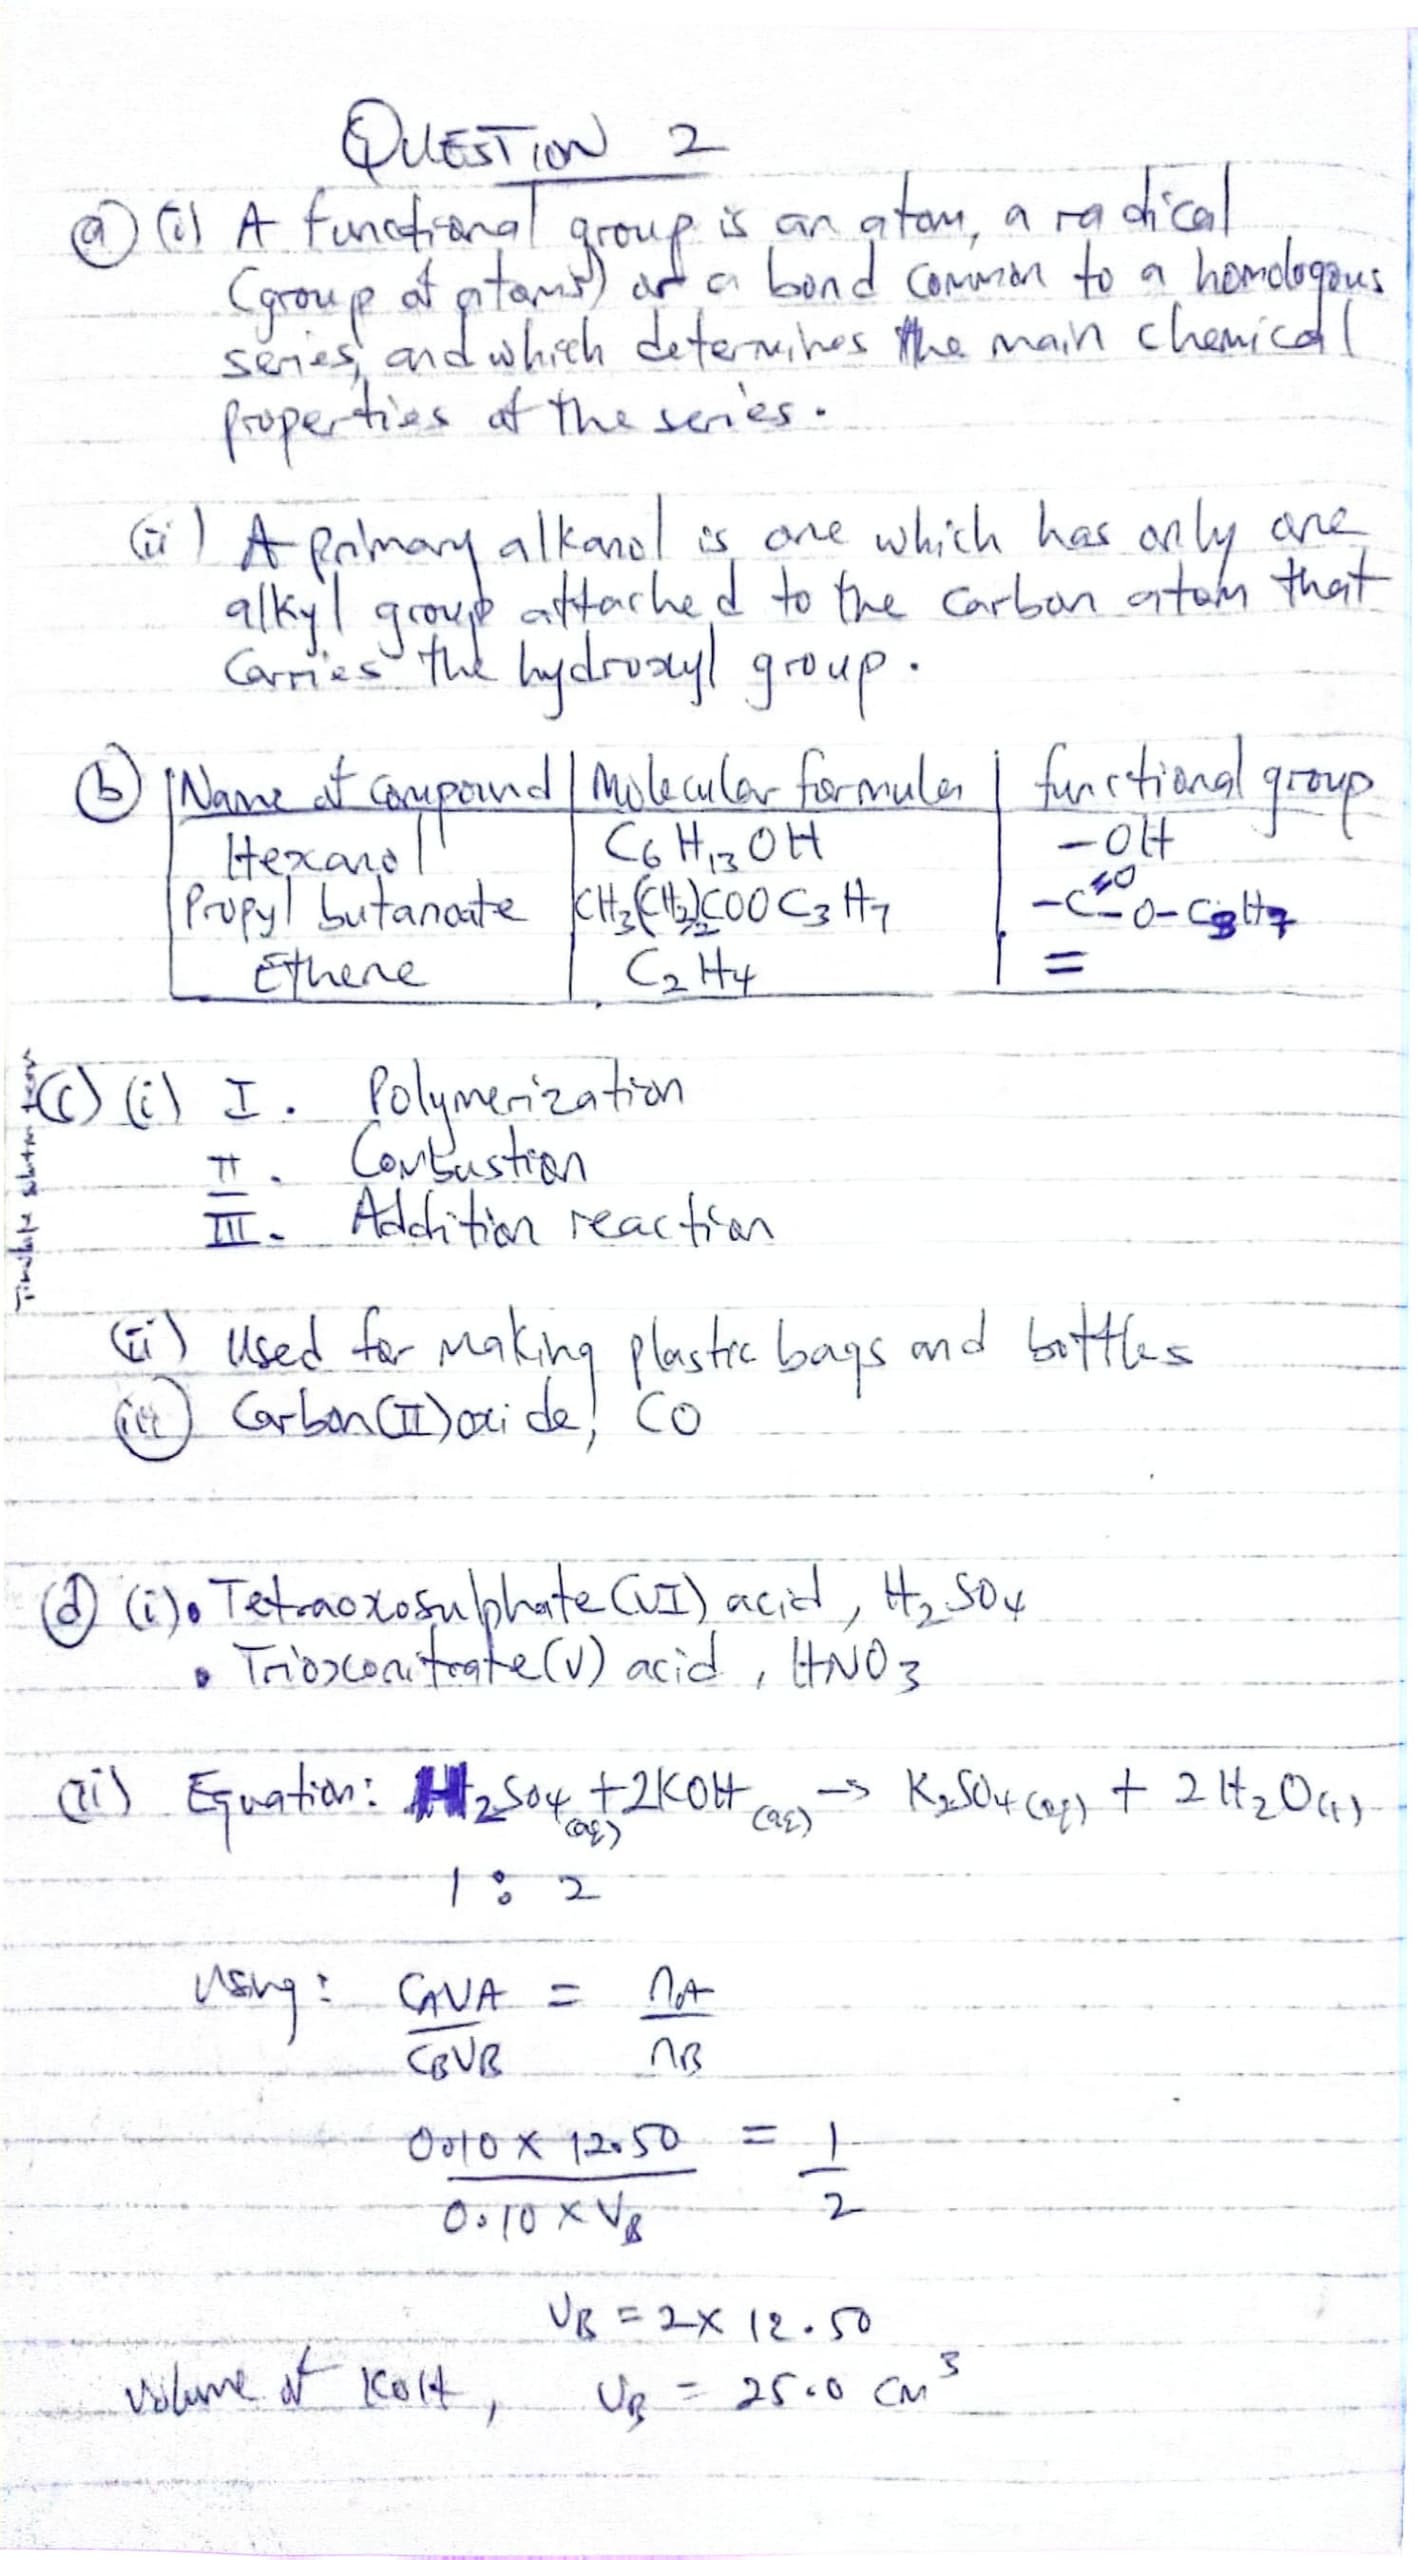 QUESTION 2
(a) (i) A functional group is an atom, a radical
(group of atoms) or a bond common to a homologous
series, and which determines the main chemical
properties of the series.
(ii) A primary alkanol is one which has only one
alkyl group attached to the carbon atom that
carries the hydroxyl group.
(b) Name of compound | Molecular formular | functional group
Hexanol | C6H13OH | -OH
Propyl butanoate | CH3(CH2)2COOC3H7 | -C=O-O-C3H7
Ethene | C2H4 | =
(c) (i) I. Polymerization
II. Combustion
III. Addition reaction
(ii) Used for making plastic bags and bottles
(iii) Carbon(II)oxide, CO
(d) (i) • Tetraoxosulphate(VI) acid, H2SO4
• Trioxonitrate(V) acid, HNO3
(ii) Equation: H2SO4(aq) + 2KOH(aq) → K2SO4(aq) + 2H2O(l)
1 : 2
Using: CAVA/CBVB = nA/nB
0.10 x 12.50 / 0.10 x VB = 1/2
VB = 2 x 12.50
Volume of KOH, VB = 25.0 cm³